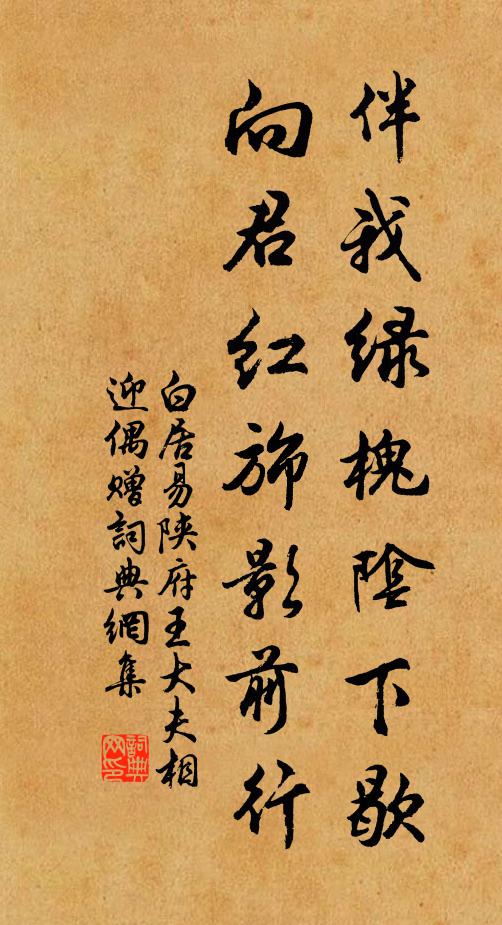 伴我绿槐陰下歇
向君红旆影前行
白居易陕府王大夫相
迎偶赠詞典網集
詞典网印